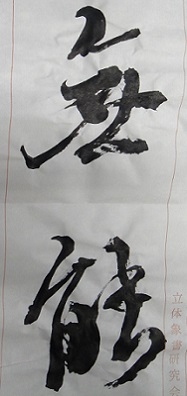 無
能
立体象書研究会